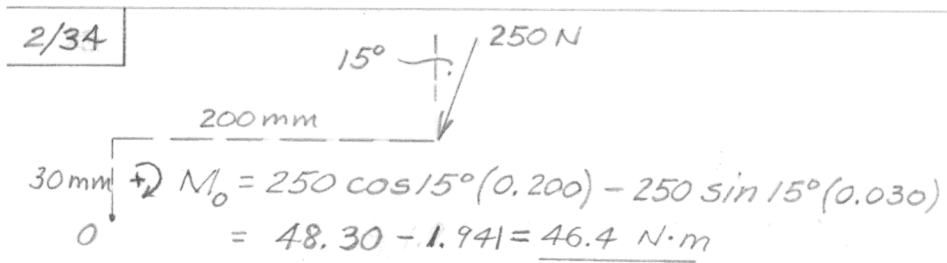 2/34
15° 250 N
200 mm
30 mm + M₀ = 250 cos 15° (0.200) - 250 sin 15° (0.030)
O = 48.30 - 1.941 = 46.4 N·m